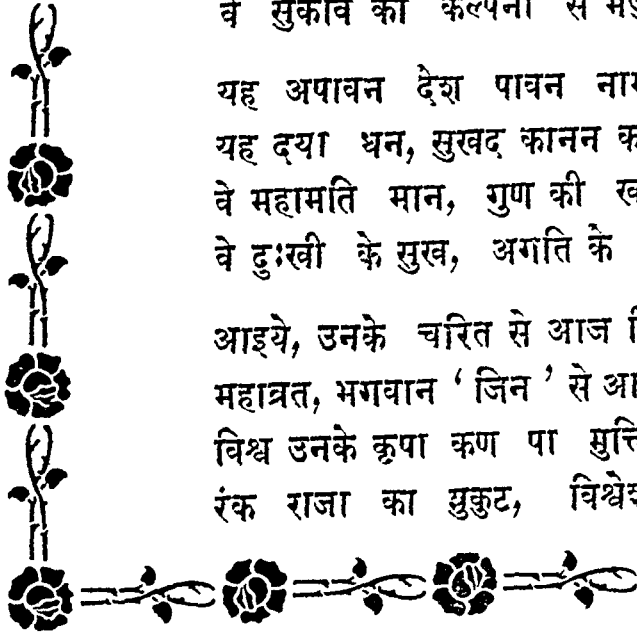 वे सुकवि की कल्पना से
यह अपावन देश पावन
यह दया धन, सुखद कानन
वे महामति मान, गुण की
वे दुःखी के सुख, अगति के
आइये, उनके चरित से आज
महाव्रत, भगवान ‘ जिन ’ से
विश्व उनके कृपा कण पा
रंक राजा का मुकुट,